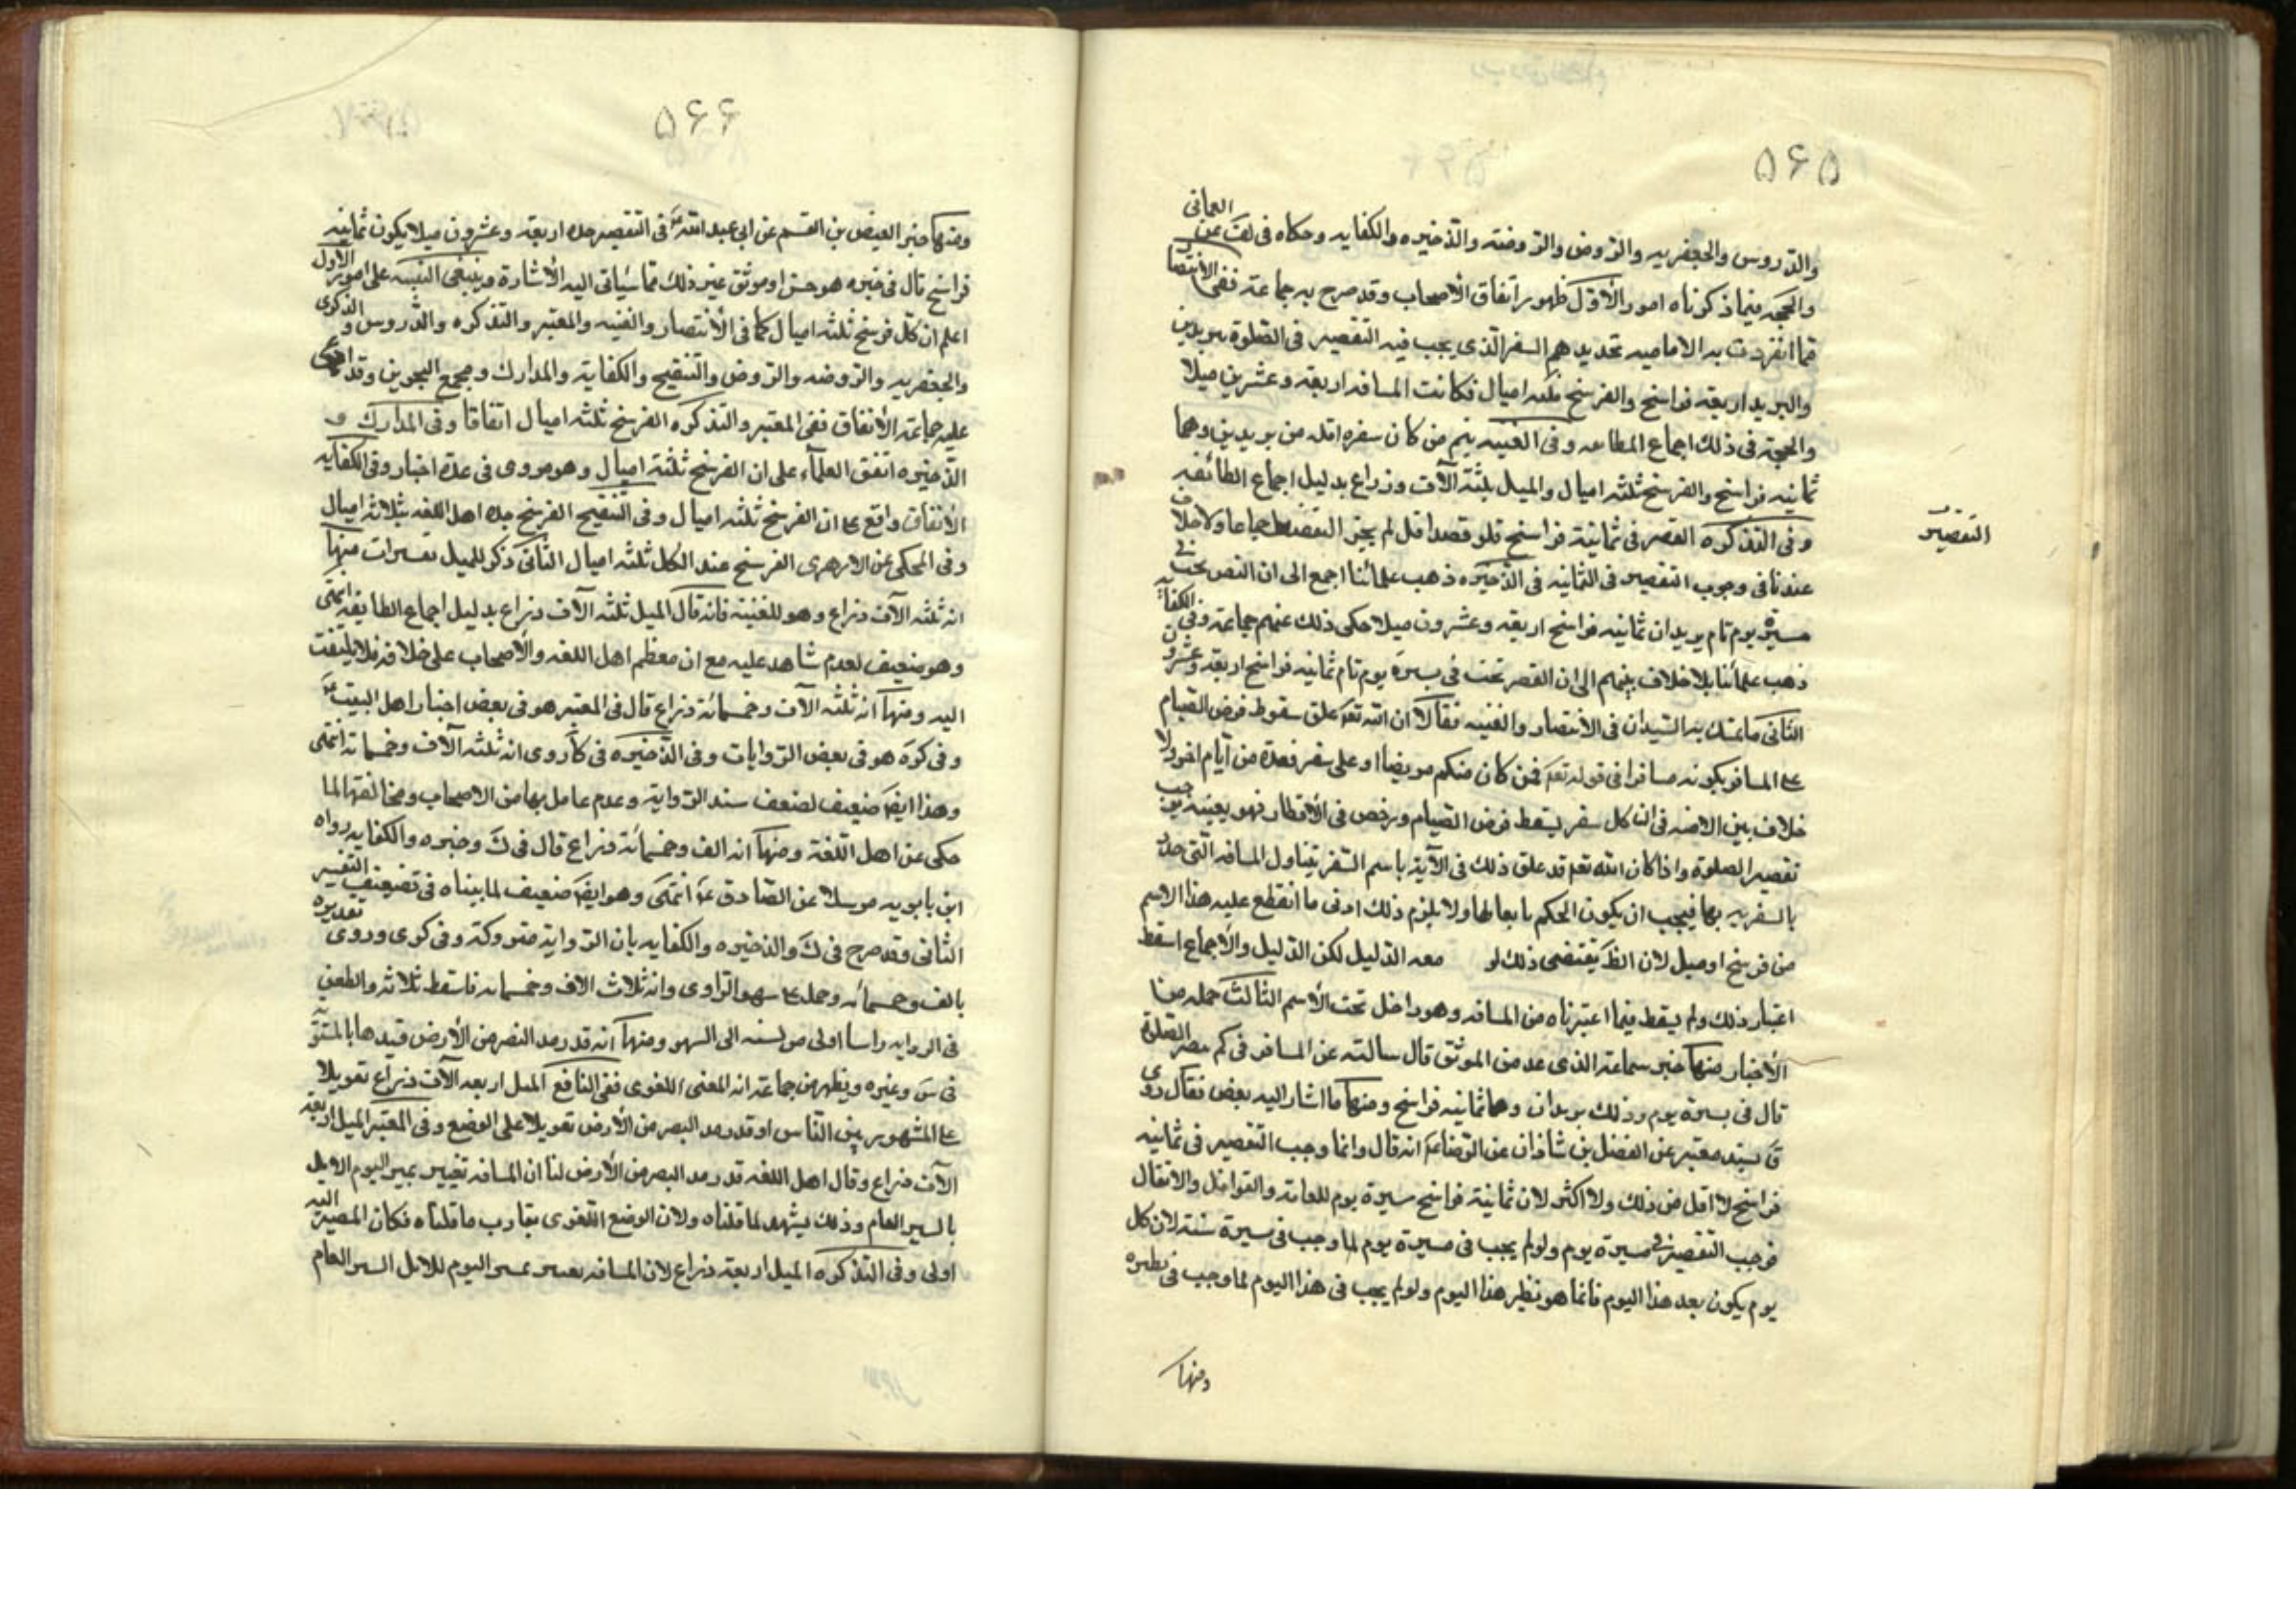 ۵۶۵
والدروس والجعفريه والروض والروضه والذخيره والكفايه وحكاه فى لف عن العمانى
والحجه فيما ذكرناه امور الأوّل ظهور اتفاق الأصحاب وقد صرح به جماعة ففى الانتصار
مما انفردت به الاماميه تحديدهم السفر الذى يجب فيه التقصير فى الصلوة ببريدين
والبريد اربعة فراسخ والفرسخ ثلثه اميال فكانت المسافه اربعة وعشرين ميلا
والحجة فى ذلك اجماع الطائفه وفى الغنيه يتم من كان سفره اقل من بريدين وهما
ثمانيه فراسخ والفرسخ ثلثه اميال والميل ثلثة آلاف ذراع بدليل اجماع الطائفه
وفى التذكره القصر فى ثمانية فراسخ فلو قصد اقل لم يجز التقصير اجماعا ولا خلاف
عندنا فى وجوب التقصير فى الثمانيه فى الذخيره ذهب علمائنا اجمع الى ان القصر يجب فى
مسيرة يوم تام بريدان ثمانيه فراسخ اربعة وعشرون ميلا حكى ذلك عنهم جماعة وفى الكفاية
ذهب علمائنا بلا خلاف بينهم الى ان القصر يجب فى مسيرة يوم تام ثمانيه فراسخ اربعة وعشرون
الثانى ما تمسك به السّيدان فى الانتصار والغنيه فقالا ان الله تعالى علق سقوط فرض الصيام
على المسافر بكونه مسافرا فى قوله تعالى فمن كان منكم مريضا او على سفر فعدة من أيام اخر ولا
خلاف بين الامه فى ان كل سفر يسقط فرض الصيام ورخص فى الأفطار فهو بعينه يوجب
تقصير الصلوة واذا كان الله تعالى قد علق ذلك فى الآية باسم السّفر يتناول المسافه التى حدّد
بالسفر بها فيجب ان يكون الحكم تابعا لها ولا يلزم ذلك ادنى ما انقطع عليه هذا الاسم
من فرسخ او ميل لان الظاهر يقتضى ذلك لو معه الدليل لكن الدّليل والأجماع اسقط
اعتبار ذلك ولم يسقط فيما اعتبرناه من المسافه وهو داخل تحت الأسم الثالث جمله من
الأخبار منها خبر سماعة الذى عد من الموثق قال سالته عن المسافر فى كم يقصر الصلوة
قال فى مسيرة يوم وذلك بريدان وهما ثمانيه فراسخ ومنها ما اشار اليه بعض فقال روى
ق بسند معتبر عن الفضل بن شاذان عن الرّضا انه قال وانما وجب التقصير فى ثمانيه
فراسخ لا اقل من ذلك ولا اكثر لان ثمانية فراسخ مسيرة يوم للعامة والقوافل والأثقال
فوجب التقصير فى مسيرة يوم ولو لم يجب فى مسيرة يوم لما وجب فى مسيرة سنة لان كل
يوم يكون بعد هذا اليوم فانما هو نظير هذا اليوم ولو لم يجب فى هذا اليوم لما وجب فى نظيره
ومنها
التقصير
۵۶۶
ومنها خبر العيص بن القسم عن ابى عبد الله فى التقصير حده اربعة وعشرون ميلا يكون ثمانيه
فراسخ قال فى خيره هو حسن او موثق غير ذلك مما سياتى اليه الأشارة وينبغى التنبيه على امور الأول
اعلم ان كل فرسخ ثلثه اميال كما فى الأنتصار والغنيه والمعتبر والتذكره والدّروس والذكرى
والجعفريه والروضه والروض والتنقيح والكفاية والمدارك ومجمع البحرين وقد
عليه جماعة الأتفاق ففى المعتبر والتذكره الفرسخ ثلثه اميال اتفاقا وفى المدارك و
الذخيره اتفق العلمآء على ان الفرسخ ثلثة اميال وهو مروى فى عدة اخبار وفى الكفايه
الأتفاق واقع على ان الفرسخ ثلثه اميال وفى التنقيح الفرسخ حده اهل اللغه بثلاثه اميال
وفى المحكى عن الازهرى الفرسخ عند الكل ثلثه اميال الثّانى ذكر للميل تفسيرات منها
انه ثلثه الآف ذراع وهو للغنيه فانه قال الميل ثلثه الآف ذراع بدليل اجماع الطايفه انتهى
وهو ضعيف لعدم شاهد عليه مع ان معظم اهل اللغه والأصحاب على خلافه فلا يلتفت
اليه ومنها انه ثلثه الآف وخمسمائة ذراع قال فى المعتبر هو فى بعض اخبار اهل البيت
وفى كره هو فى بعض الرّوايات وفى الذّخيره فى كا روى انه ثلثه آلاف وخمسمائه انتهى
وهذا ايضا ضعيف لضعف سند الرّوايه وعدم عامل بها من الاصحاب ومخالفتها لما
حكى عن اهل اللغة ومنها انه الف وخمسمائة ذراع قال فى ك وخيره والكفايه رواه
ابن بابويه مرسلا عن الصّادق انتهى وهو ايضا ضعيف لما بيناه فى تضعيف التفسير
الثانى وقد صرح فى ك والذخيره والكفايه بان الرّواية متروكة وفى كرى وروى تقديره
بالف وخمسمائه وحمله على سهو الرّاوى وانه ثلاث الاف وخمسمائه فاسقط ثلاثه والطعن
فى الروايه راسا اولى من نسبه الى السهو ومنها انه قدر مد البصر من الأرض قيدها بالمستوية
فى س وغيره ويظهر من جماعة انه المعنى اللغوى ففى النافع الميل اربعه آلاف ذراع تعويلا
على المشهور بين الناس او قدر مد البصر من الأرض تعويلا على الوضع وفى المعتبر الميل اربعة
الآف ذراع وقال اهل اللغه قدر مد البصر من الأرض لنا ان المسافه تعتبر بمسير اليوم الابل
بالسير العام وذلك يشهد لما قلناه ولان الوضع اللّغوى يقارب ما قلناه فكان المصير اليه
اولى وفى التذكره الميل اربعة ذراع لان المسافه تعتبر بمسير اليوم للابل السير العام